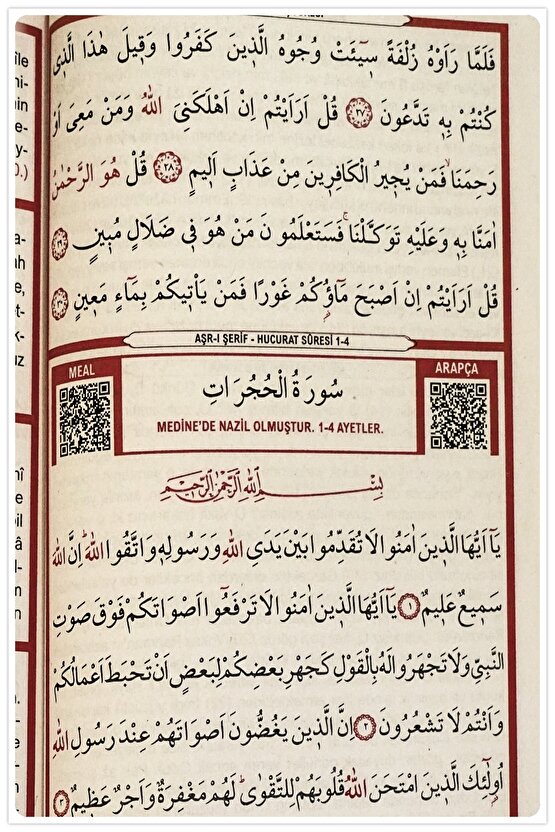 فَلَمَّا رَاَوْهُ زُلْفَةً سٖٓيـَٔتْ وُجُوهُ الَّذٖينَ كَفَرُوا وَقٖيلَ هٰذَا الَّذٖى
كُنْتُمْ بِهٖ تَدَّعُونَ ﴿٢٧﴾ قُلْ اَرَاَيْتُمْ اِنْ اَهْلَكَنِىَ اللّٰهُ وَمَنْ مَعِىَ اَوْ
رَحِمَنَا فَمَنْ يُجٖيرُ الْكَافِرٖينَ مِنْ عَذَابٍ اَلٖيمٍ ﴿٢٨﴾ قُلْ هُوَ الرَّحْمٰنُ
اٰمَنَّا بِهٖ وَعَلَيْهِ تَوَكَّلْنَا فَسَتَعْلَمُونَ مَنْ هُوَ فٖى ضَلَالٍ مُبٖينٍ ﴿٢٩﴾
قُلْ اَرَاَيْتُمْ اِنْ اَصْبَحَ مَٓاؤُ۬كُمْ غَوْرًا فَمَنْ يَأْتٖيكُمْ بِمَٓاءٍ مَعٖينٍ ﴿٣٠﴾
AŞR-I ŞERİF - HUCURAT SÛRESİ 1-4
MEAL
ARAPÇA
سُورَةُ الْحُجُرَاتِ
MEDİNE'DE NAZİL OLMUŞTUR. 1-4 AYETLER.
بِسْمِ اللّٰهِ الرَّحْمٰنِ الرَّحٖيمِ
يَٓا اَيُّهَا الَّذٖينَ اٰمَنُوا لَا تُقَدِّمُوا بَيْنَ يَدَىِ اللّٰهِ وَرَسُولِهٖ وَاتَّقُوا اللّٰهَ اِنَّ اللّٰهَ
سَمٖيعٌ عَلٖيمٌ ﴿١﴾ يَٓا اَيُّهَا الَّذٖينَ اٰمَنُوا لَا تَرْفَعُٓوا اَصْوَاتَكُمْ فَوْقَ صَوْتِ
النَّبِىِّ وَلَا تَجْهَرُوا لَهُ بِالْقَوْلِ كَجَهْرِ بَعْضِكُمْ لِبَعْضٍ اَنْ تَحْبَطَ اَعْمَالُكُمْ
وَاَنْتُمْ لَا تَشْعُرُونَ ﴿٢﴾ اِنَّ الَّذٖينَ يَغُضُّونَ اَصْوَاتَهُمْ عِنْدَ رَسُولِ اللّٰهِ
اُو۬لٰٓئِكَ الَّذٖينَ امْتَحَنَ اللّٰهُ قُلُوبَهُمْ لِلتَّقْوٰى لَهُمْ مَغْفِرَةٌ وَاَجْرٌ عَظٖيمٌ ﴿٣﴾